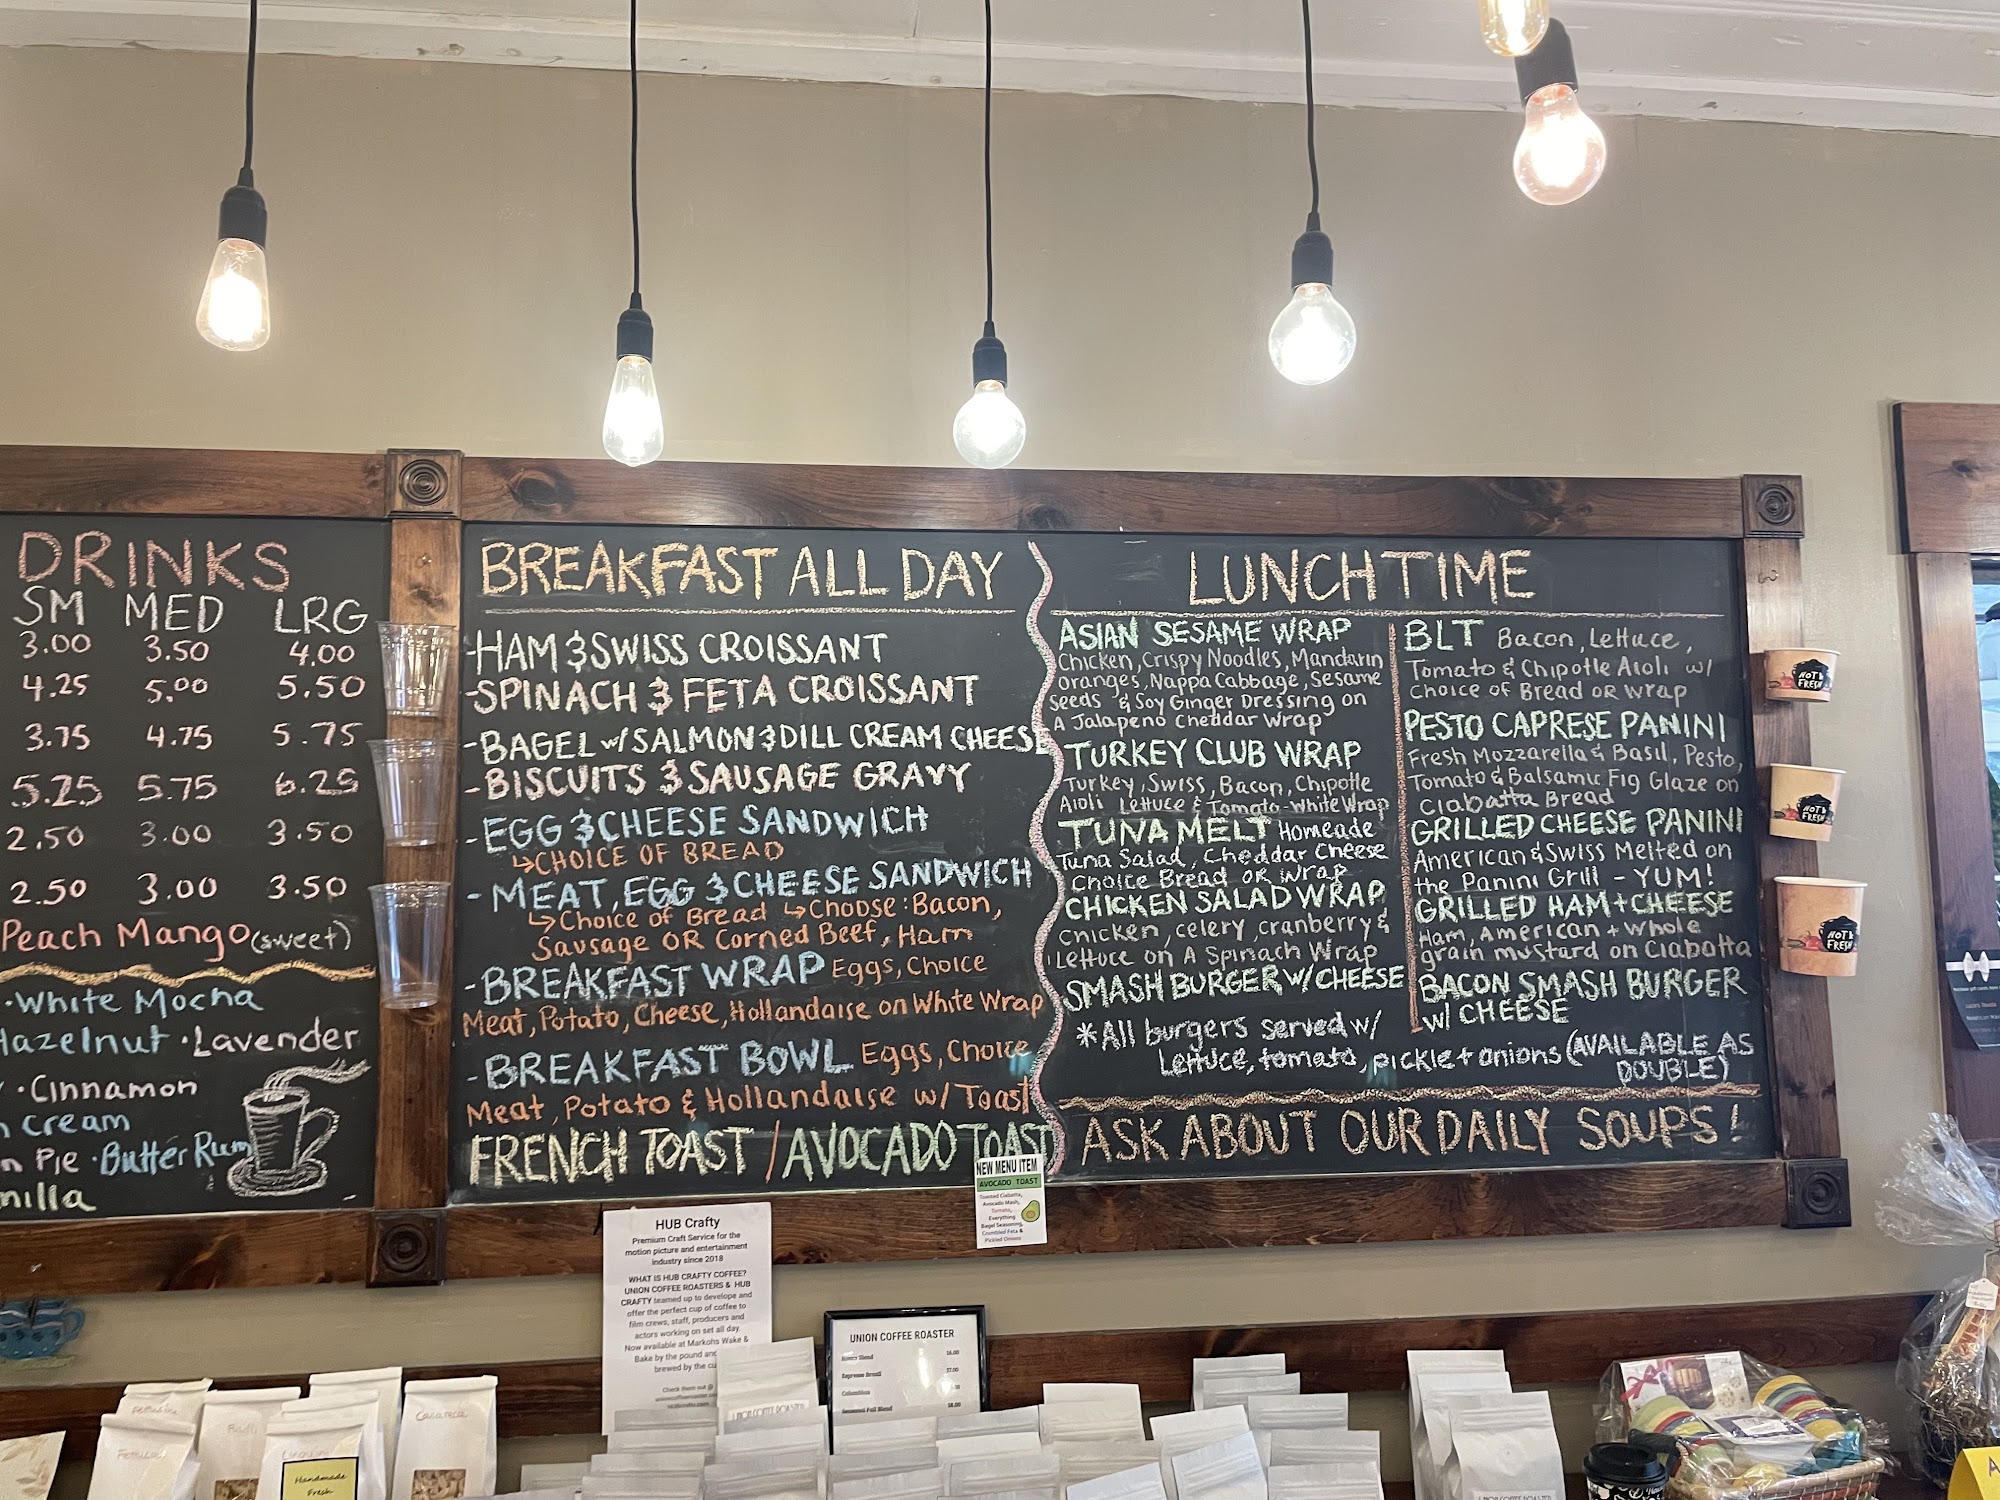 DRINKS
SM MED LRG
3.00 3.50 4.00
4.25 5.00 5.50
3.75 4.75 5.75
5.25 5.75 6.25
2.50 3.00 3.50
2.50 3.00 3.50
Peach Mango (sweet)
·White Mocha
Hazelnut ·Lavender
·Cinnamon
Cream
Pie ·Butter Rum
BREAKFAST ALL DAY
-HAM & SWISS CROISSANT
-SPINACH & FETA CROISSANT
-BAGEL w/ SALMON & DILL CREAM CHEESE
-BISCUITS & SAUSAGE GRAVY
-EGG & CHEESE SANDWICH
↳CHOICE OF BREAD
-MEAT, EGG & CHEESE SANDWICH
↳Choice of Bread ↳Choose: Bacon,
Sausage OR Corned Beef, Ham
-BREAKFAST WRAP Eggs, Choice
Meat, Potato, Cheese, Hollandaise on White Wrap
-BREAKFAST BOWL Eggs, Choice
Meat, Potato & Hollandaise w/ Toast
FRENCH TOAST / AVOCADO TOAST
LUNCH TIME
ASIAN SESAME WRAP
Chicken, Crispy Noodles, Mandarin
Oranges, Nappa Cabbage, Sesame
Seeds & Soy Ginger Dressing on
A Jalapeno Cheddar Wrap
TURKEY CLUB WRAP
Turkey, Swiss, Bacon, Chipotle
Aioli Lettuce & Tomato-White Wrap
TUNA MELT Homeade
Tuna Salad, Cheddar Cheese
Choice Bread OR Wrap
CHICKEN SALAD WRAP
Chicken, celery, cranberry &
Lettuce on A Spinach Wrap
SMASH BURGER W/ CHEESE
BLT Bacon, Lettuce,
Tomato & Chipotle Aioli w/
Choice of Bread OR Wrap
PESTO CAPRESE PANINI
Fresh Mozzarella & Basil, Pesto,
Tomato & Balsamic Fig Glaze on
Ciabatta Bread
GRILLED CHEESE PANINI
American & Swiss Melted on
the Panini Grill - YUM!
GRILLED HAM + CHEESE
Ham, American + Whole
grain mustard on Ciabatta
BACON SMASH BURGER
W/ CHEESE
*All burgers served w/
Lettuce, tomato, pickle + onions (AVAILABLE AS
DOUBLE)
ASK ABOUT OUR DAILY SOUPS!
HOT &
FRESH
HOT &
FRESH
HOT &
FRESH
NEW MENU ITEM
AVOCADO TOAST
Toasted Ciabatta,
Avocado Mash,
Tomato,
Everything
Bagel Seasoning,
Crumbled Feta &
Pickled Onions
HUB Crafty
Premium Craft Service for the
motion picture and entertainment
industry since 2018
WHAT IS HUB CRAFTY COFFEE?
UNION COFFEE ROASTERS & HUB
CRAFTY teamed up to develope and
offer the perfect cup of coffee to
film crews, staff, producers and
actors working on set all day.
Now available at Markohs Wake &
Bake by the pound and
brewed by the cu
Check them out @
UNION COFFEE ROASTER
Espresso Brazil
Columbian
Seasonal Fall Blend
Handmade
Fresh